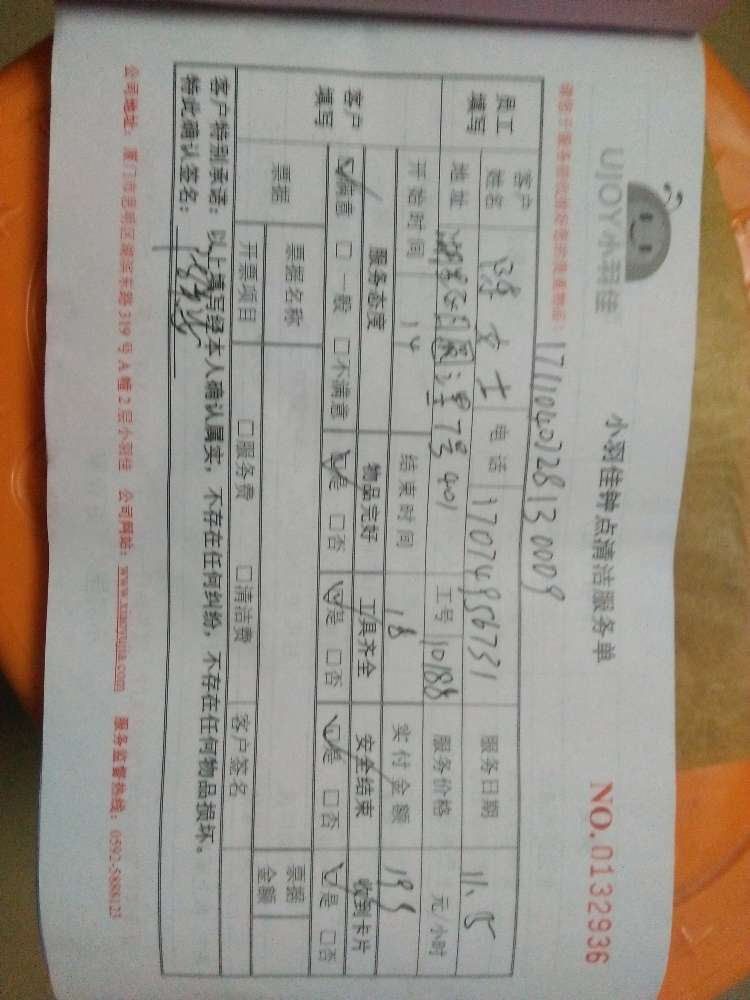 UJOY小羽佳
小羽佳钟点清洁服务单
NO.0132936
17110407281 30009
员工填写
客户姓名 女士 电话 17074956731 服务日期 11.15
地址 里7号401 工号 10188 服务价格 元/小时
开始时间 14 结束时间 18 实付金额 195
客户填写
服务态度 物品完好 工具齐全 安全结束 收到卡片
满意 □一般 □不满意 是 □否 是 □否 是 □否 是 □否
票据 票据名称 票据金额
开票项目 □服务费 □清洁费 客户签名
客户特别承诺:以上填写经本人确认属实,不存在任何纠纷,不存在任何物品损坏。
特此确认签名:
公司地址:厦门市思明区湖滨东路319号A幢2层小羽佳 公司网站:www.xiaoyujia.com 服务监督热线:0592-5888123